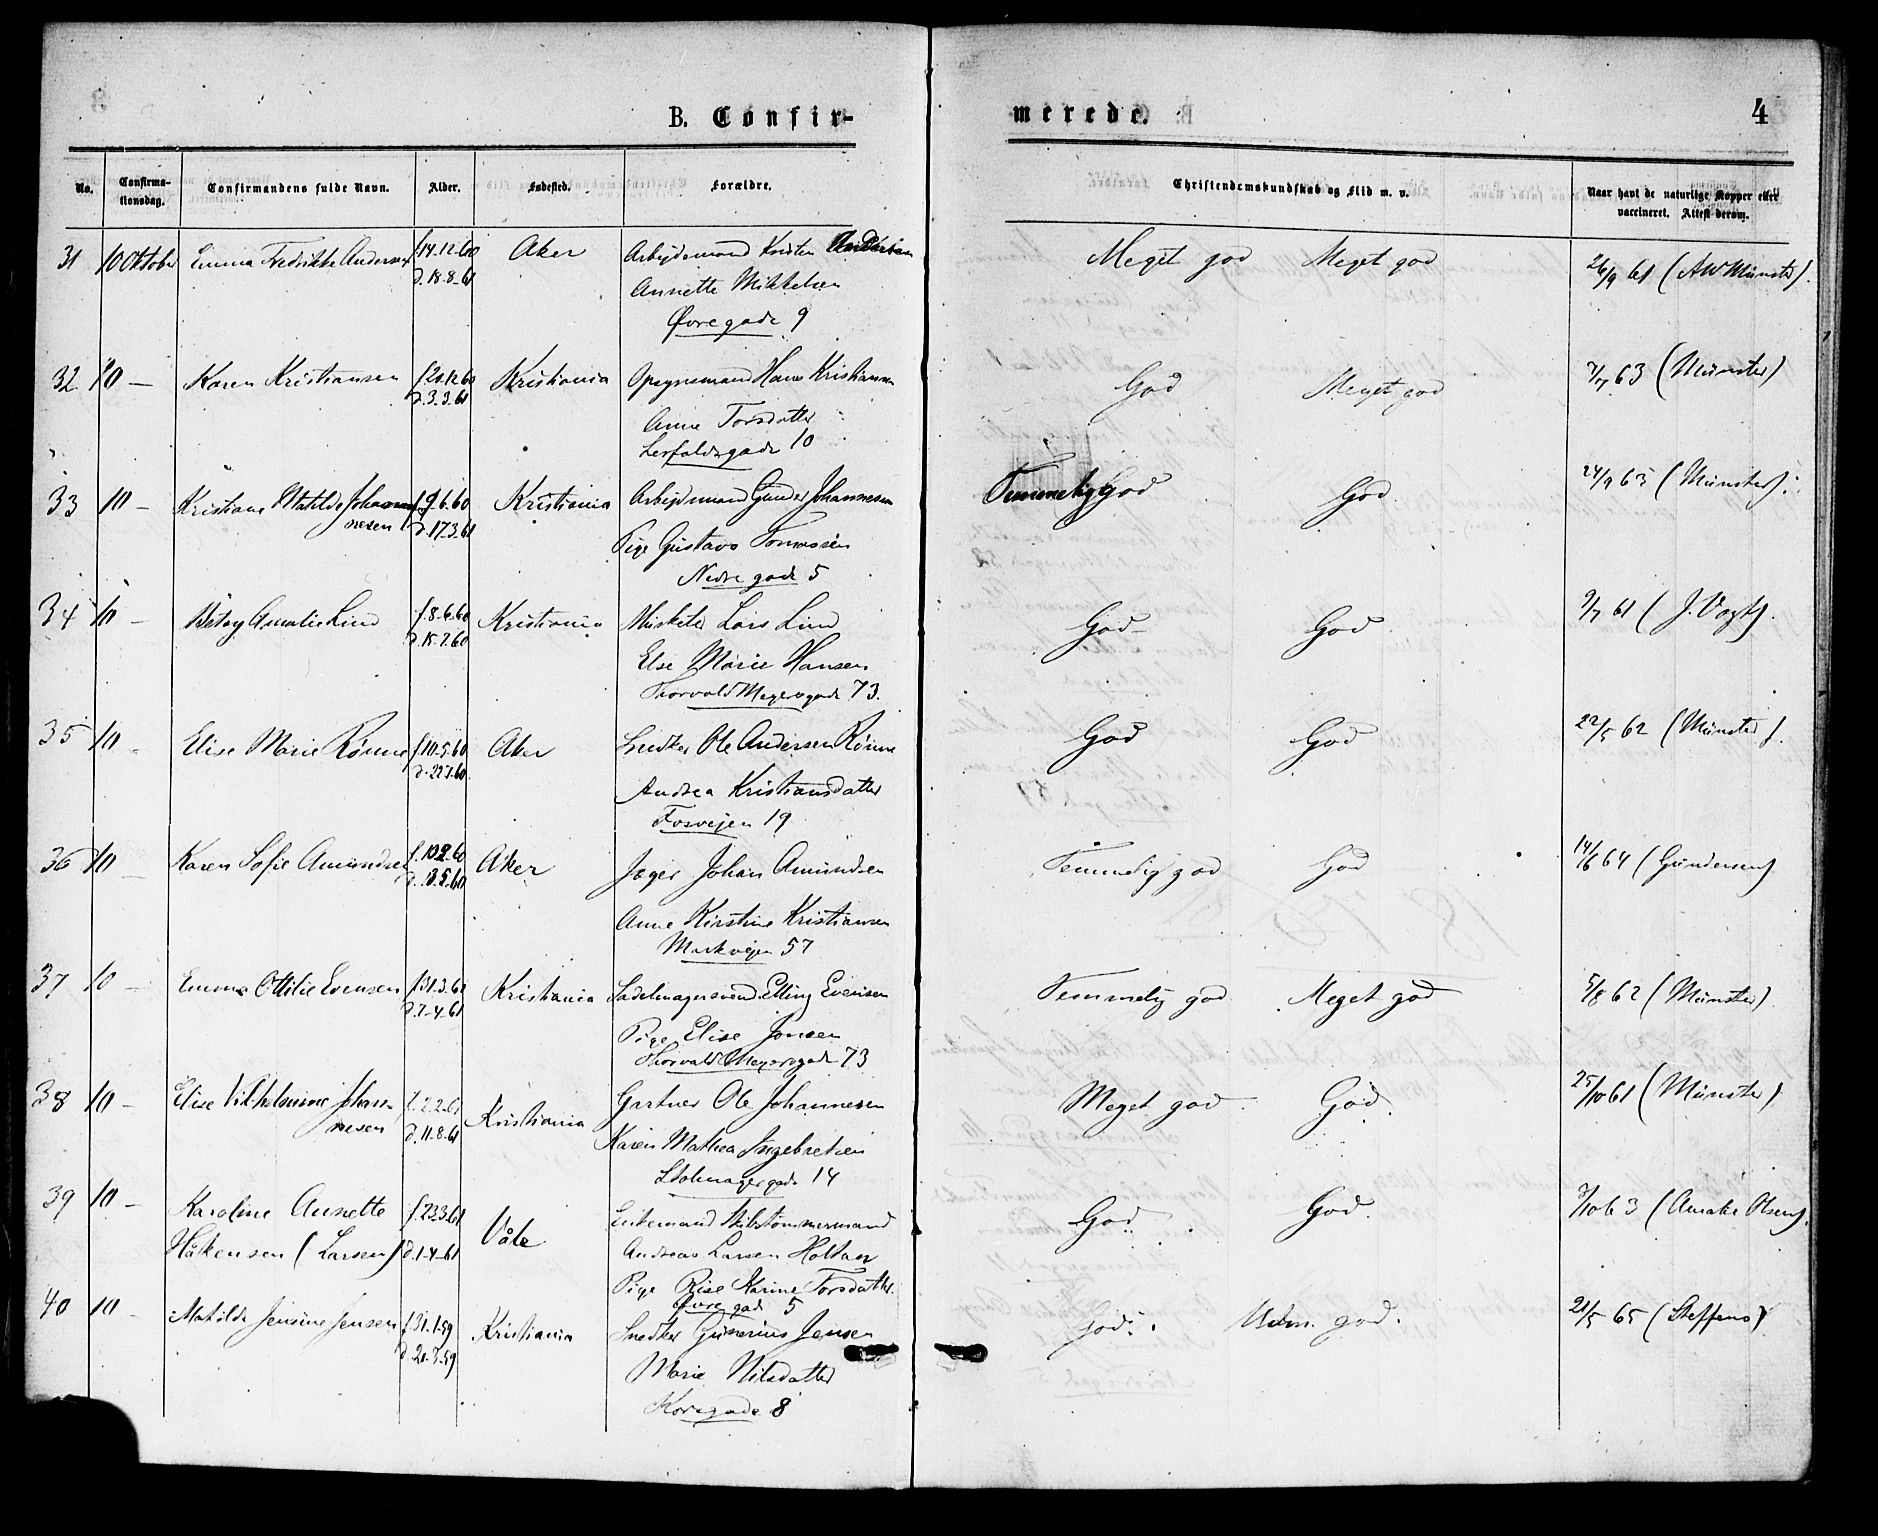 B. Confir-
merede.
4
No.
Confirma-
tionsdag.
Confirmandens fulde Navn.
Alder.
Fødested.
Forældre.
Christendomskundskab og Flid m. v.
Naar havt de naturlige Kopper eller
vaccineret. Attest derom.
31 10 Oktober Emma Fredrikke Andersen f. 14-12-60 Aker Arbejdsmand Kristen Andersen Meget god Meget god 26/9 61 (AW Münster).
d. 18-8-61 Annette Mikkelsen
Øvregade 9
32 10 — Karen Kristiansen Kristiania Opsynsmand Hans Kristiansen God Meget god 7/7 63 (Münster)
d. 3-3-61
Anne Torsdatter
Lerfaldsgade 10
33 10 — Kristiane Matilde Johan- f. 9-6-60 Kristiania Arbejdsmand Gunder Johannesen Temmelig God God 24/9 63 (Münster).
nesen d. 17-3-61
Pige Gustava Tomassen
Nedre gade 5
34 10 — Betsy Amalie Lind f. 8-6-60 Kristiania Musketer Lars Lind God God 9/7 61 (J. Vogt).
d. 15-7-60 Else Marie Hansen
Thorvald Meyersgade 73.
35 10 — Elise Marie Rönne f. 10-5-60 Aker Snedker Ole Andersen Rönne God God 22/5 62 (Münster).
d. 22-7-60.
Andrea Kristiansdatter
Fosvejen 19
36 10 — Karen Sofie Amundsen Aker Jæger Johan Amundsen Temmelig god God 14/6 64 (Gundersen)
Anne Kirstine Kristiansen
Markvejen 57
37 10 — Emma Ottilie Evensen f. 31-3-61 Kristiania Sadelmagersvend Elling Evensen Temmelig god Meget god 5/8 62 (Münster)
d. 7-4-61
Pige Elise Jonsen
Thorvald Meyersgade 73
38 10 — Elise Vilhelmine Johan- f. 2-2-61 Kristiania Gartner Ole Johannesen Meget god God. 25/10 61 (Münster)
nesen d. 11-8-61 Karen Mathea Ingebretsen
Stolmagergade 14
39 10 — Karoline Annette f. 23-3-61 Våle Enkemand Skibstømmermand God God. 3/10 63 (Amalie Olsen).
Håkensen (Larsen) d. 1-4-61 Andreas Larsen Holtan
Pige Karine Torsdatter.
Øvre gade 5
40 10 — Matilde Jensine Jensen f. 31-1-59 Kristiania Snedker Gunerius Jensen God. Udm. god. 21/5 65 (Steffens)
d. 20-3-59
Marie Nilsdatter
Korsgade 8